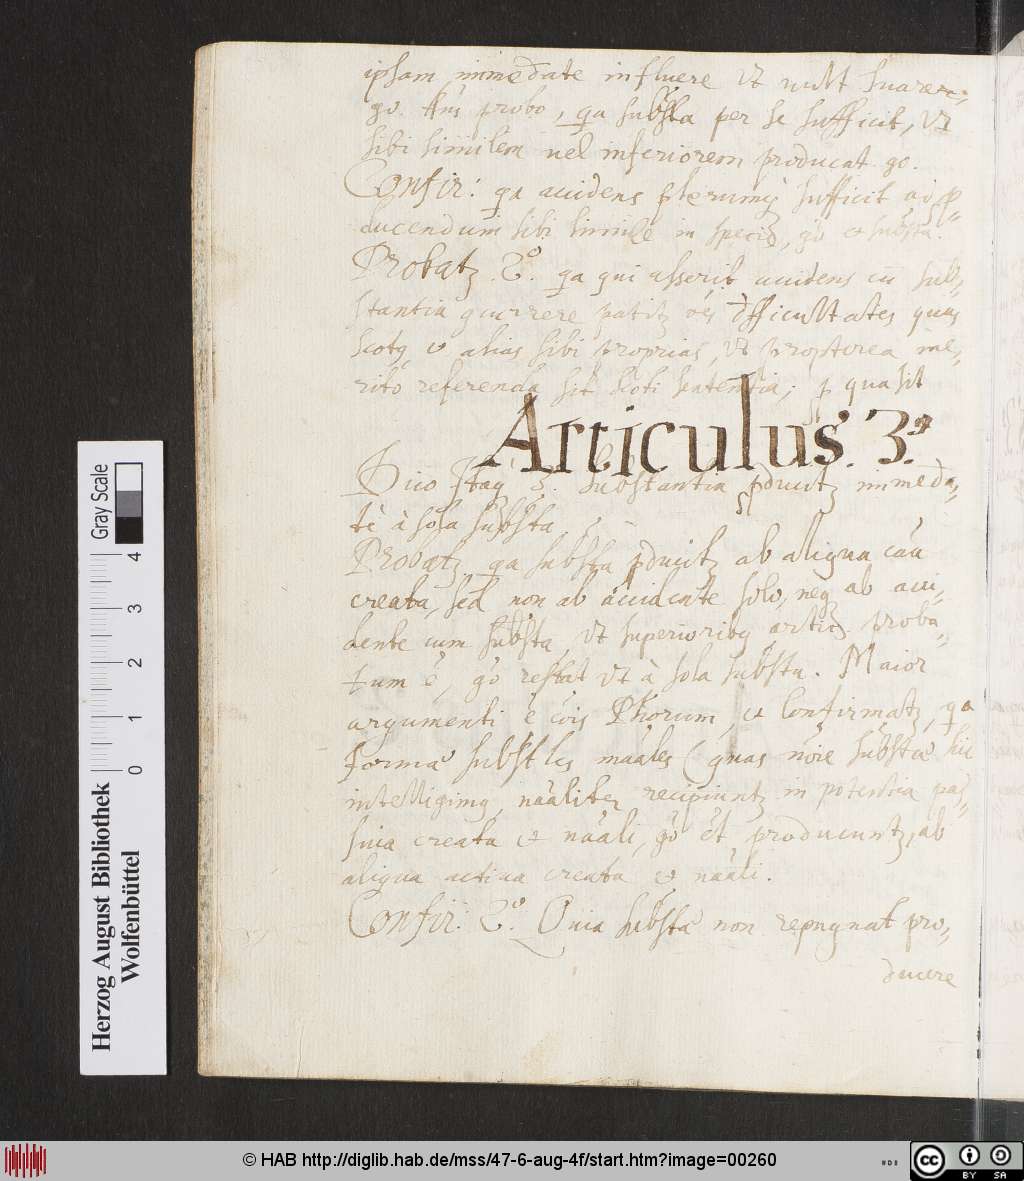 ipsam immediate influere vt vult Suarez,
go. Ans probo, qa substa per se sufficit, vt
sibi similem uel inferiorem producat. go.
Confir: qa accidens plerumq sufficit ad p
ducendum sibi simile in specie, go et substa.
Probatz 2º. qa qui asserit accidens cu sub-
stantia
patitz oes difficultates quas
Scotq et alias sibi proprias, vt propterea me-
rito referenda sit Scoti sententia; p qua sit
Articulus. 3.9
Dico Itaq 3. substantia pducitz immedia-
tè à sola substa
Probatz qa substa pducitz ab aliqua cau
creata, sed non ab accidente solo, neq ab acci-
dente cum substa, vt superioribq artic. proba-
tum è, go restat vt à sola substa. Maior
argumenti è cois Phorum, et Confirmatz, qa
formæ substles maales (quas noie substæ hic
intelligimq naaliter recipiuntz in potentia pas-
siua creata et naali, go et producuntz ab
aliqua actiua creata et naali.
Confir: 2º. Quia substæ non repugnat pro-
ducere
Gray Scale
4
3
2
1
0
Herzog August Bibliothek
Wolfenbüttel
© HAB http://diglib.hab.de/mss/47-6-aug-4f/start.htm?image=00260
cc BY SA